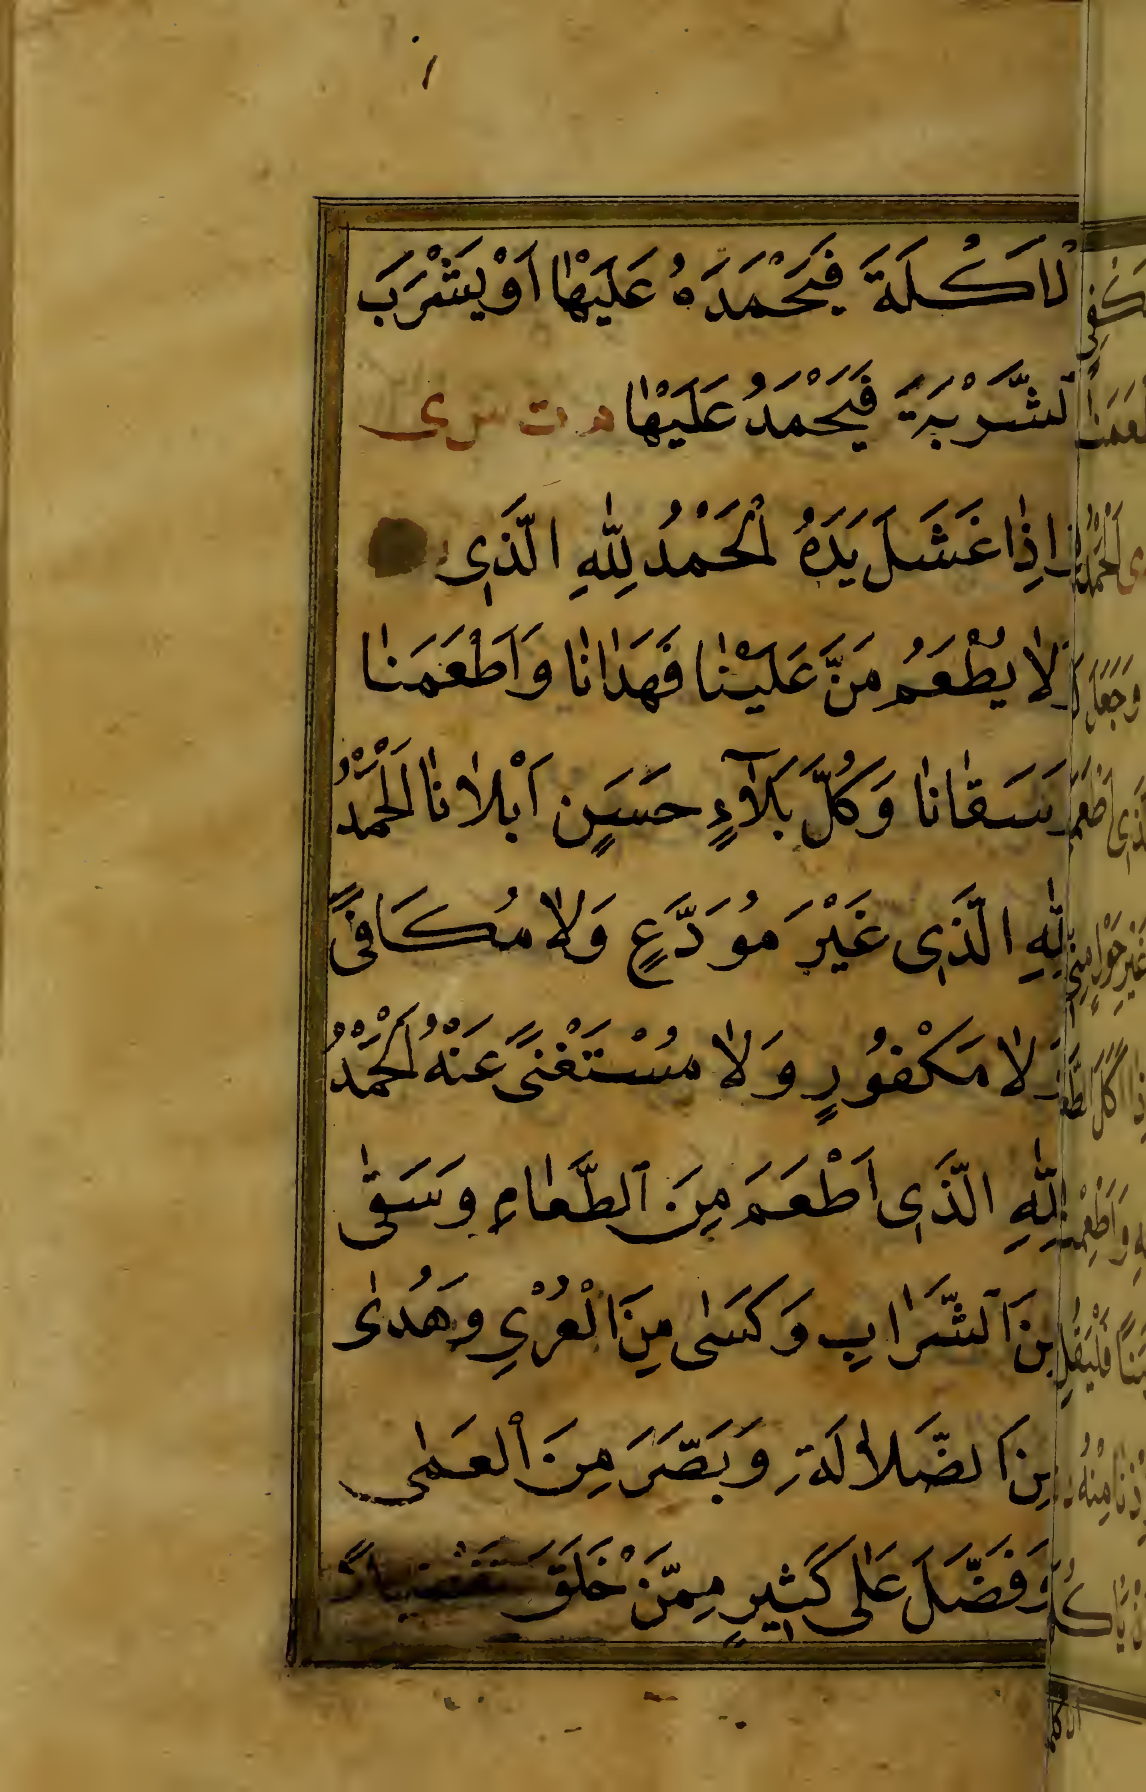 الْاَكْلَةَ فَيَحْمَدَهُ عَلَيْهٰا اَوْ يَشْرَبَ
اَلشَّرْبَةَ فَيَحْمَدُ عَلَيْهٰا م ت س ى
فَاِذٰا غَسَلَ يَدَهُ اَلْحَمْدُ لِلّٰهِ الَّذَى
لٰا يُطْعَمُ مَنَّ عَلَيْنٰا فَهَدٰانٰا وَاَطْعَمَنٰا
وَسَقٰانٰا وَكُلَّ بَلَآءٍ حَسَنٍ اَبْلٰانٰا اَلْحَمْدُ
لِلّٰهِ الَّذَى غَيْرَ مُوَدَّعٍ وَلٰا مُكَافىً
وَلٰا مَكْفُورٍ وَلٰا مُسْتَغْنىً عَنْهُ اَلْحَمْدُ
لِلّٰهِ الَّذَى اَطْعَمَ مِنَ اَلطَّعٰامِ وَسَقٰى
مِنَ اَلشَّرٰابِ وَكَسٰى مِنَ الْعُرْىِ وَهَدٰى
مِنَ اَلضَّلٰالَةِ وَبَصَّرَ مِنَ الْعَمٰى
وَفَضَّلَ عَلٰى كَثِيرٍ مِمَّنْ خَلَقَ تَفْضِيلاً